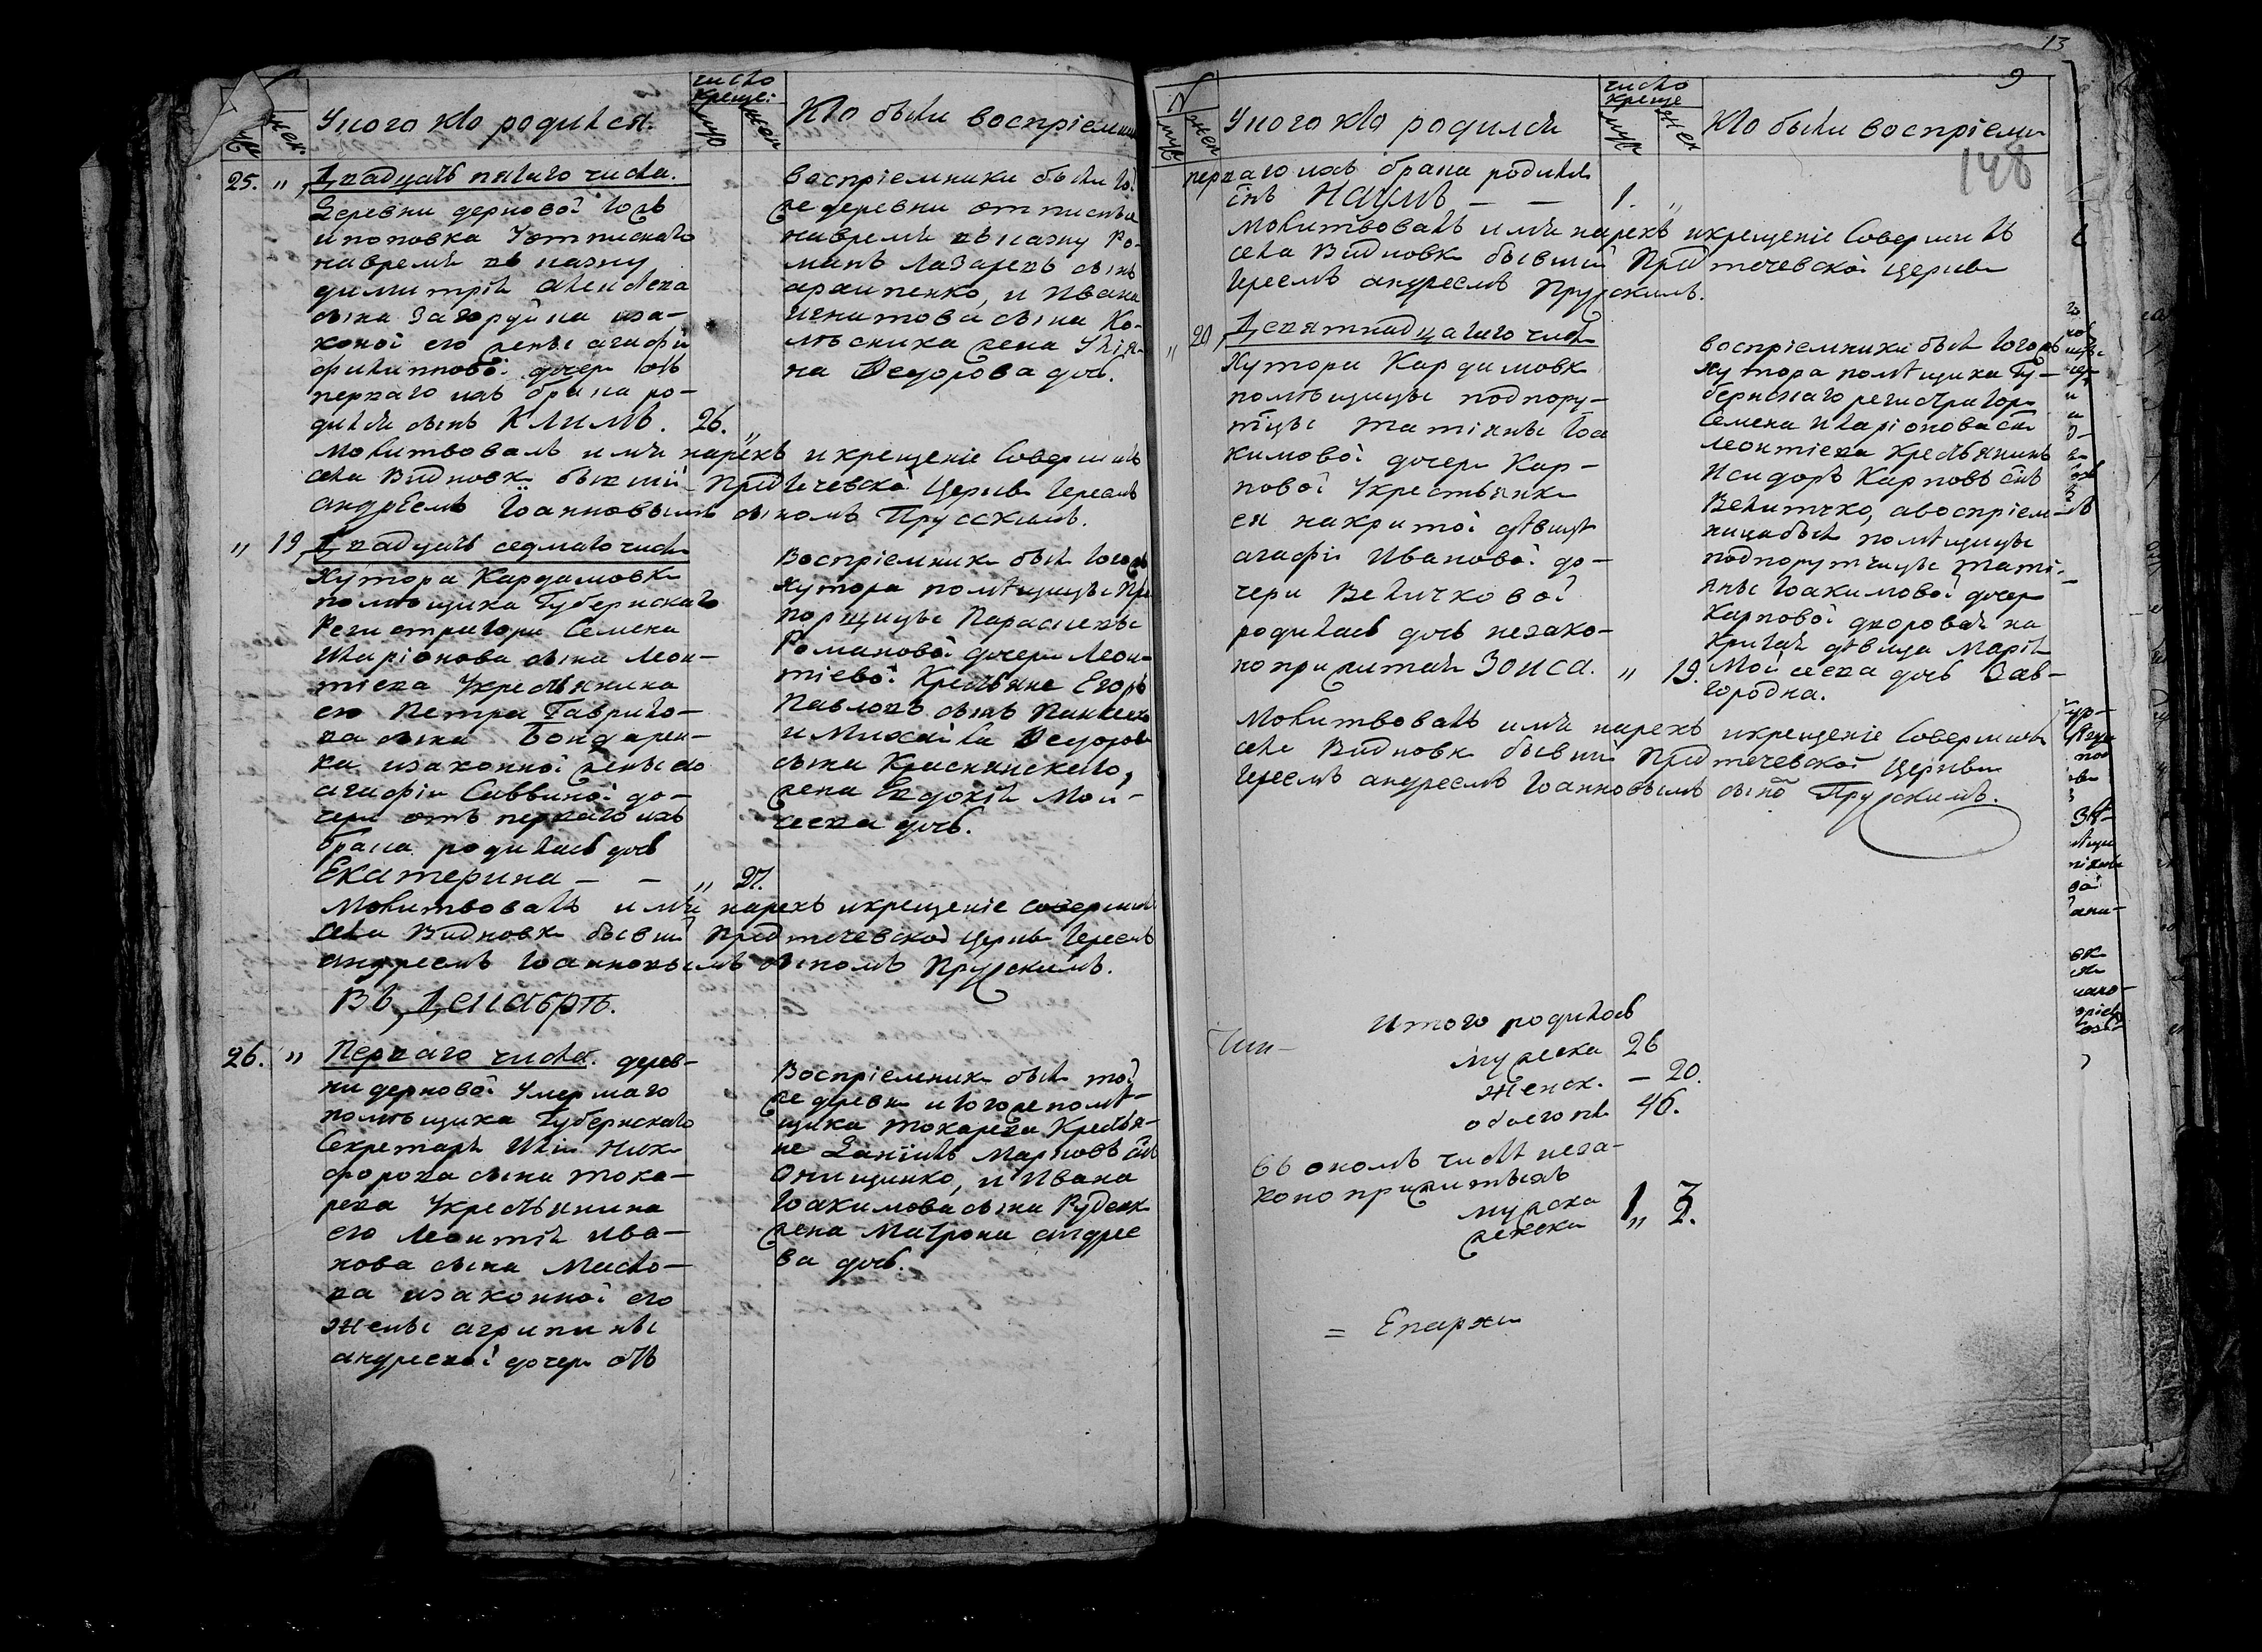 число
креще:
муж жен
муж. жен. У кого кто родился. Кто были воспріемники
25. „ Двадцать пятаго числа.
Деревни дерновой тожъ
и поповка У отписнаго
на время въ казну
димитрія
сына Загоруйка иза-
коной его жены агафіи
филипповой дочери отъ
перваго ихъ брака ро-
дился сынъ Климъ. 26. „
воспріемники были той
же деревни отписные
на время въ казну Ро-
манъ Лазаревъ сынъ
архипенко, и Ивана
Игнатова сына Ко-
лѣсника жена Улія-
на Ѳедорова дочь.
Молитвовалъ имя нарекъ и крещеніе Совершилъ
села Видновки бывшій Предтечевской Церкви Іереемъ
андреемъ Іоанновымъ сыномъ Прускимъ.
„ 19 Двадцать седмаго числа
Хутора Кардамовки
помѣщика Губернскаго
Регистратора Семена
Иларіонова сына Леон-
тіева У крестьянина
его Петра Гаврило-
ва сына Бондарен-
ка изаконной жены его
агафіи Саввиной до-
чери отъ перваго ихъ
брака родилась дочь
Екатерина — — „ 27.
Воспріемники были тогожъ
хутора помѣщицы Пра
порщицы Парасковьи
Романовой дочери Леон-
тіевой Крестьяне Егоръ
Павловъ сынъ
и Михаила Ѳедорова
сына Краснянскаго,
жена Евдокія Мой-
сеева дочь.
Молитвовалъ имя нарекъ и крещеніе совершилъ
села Видновки бывшій Предтечевской Церкви Іереемъ
андреемъ Іоанновымъ сыномъ Прускимъ.
Въ Декабрѣ.
26. „ Перваго числа. дерев-
ни дерновой Умершаго
помѣщика Губернскаго
Секретаря Иліи Ники
форова сына тока-
рева У крестьянина
его Леонтія Ива-
нова сына Масло-
ва изаконной его
Жены агрипины
андреевой дочери отъ
Воспріемники были той
же деревни и тогоже помѣ-
щика токарева Крестья-
не Даніилъ Марковъ сынъ
Онищинко, и Ивана
Іоакимова сына Руденк
жена Матрона андрее
ва дочь.
13
9
148
N число
креще
муж жен У кого кто родился муж жен Кто были воспріемни
перваго ихъ брака родился
сынъ Наумъ — — 1. „
Молитвовалъ имя нарекъ и крещеніе Совершилъ
села Видновки бывшій Предтечевской Церкви
Іереемъ андреемъ Прускимъ.
„ 20 Девятнадцатаго числа
Хутора Кардамовки
помѣщицы подпору-
тчицы татіяны Іоа
кимовой дочери Кар-
повой У крестьянки
ея накритой дѣвицы
агафіи Ивановой до-
чери Величковой
родилась дочь незако-
но прижитая Зоиса. „ 19.
воспріемники были тогожъ
хутора помѣщика Гу-
бернскаго регистратора
Семена Иларіонова сына
Леонтіева Крестьянинъ
Исидоръ Карповъ сынъ
Величко, а воспріем-
ница была помѣщицы
подпорутчицы тати-
яны Іоакимовой дочери
Карповой дворовая на
критая дѣвица Марія
Мойсеева дочь Зав-
городна.
Молитвовалъ имя нарекъ и крещеніе Совершилъ
села Видновки бывшій Предтечевской Церкви
Іереемъ андреемъ Іоанновымъ сыномъ Прускимъ.
Итого родилось
мужеска 26
Женск. — 20.
обоего пола 46.
Въ ономъ числѣ неза-
коно прижитыхъ
мужска 1
женски „ 3.
= Епархи